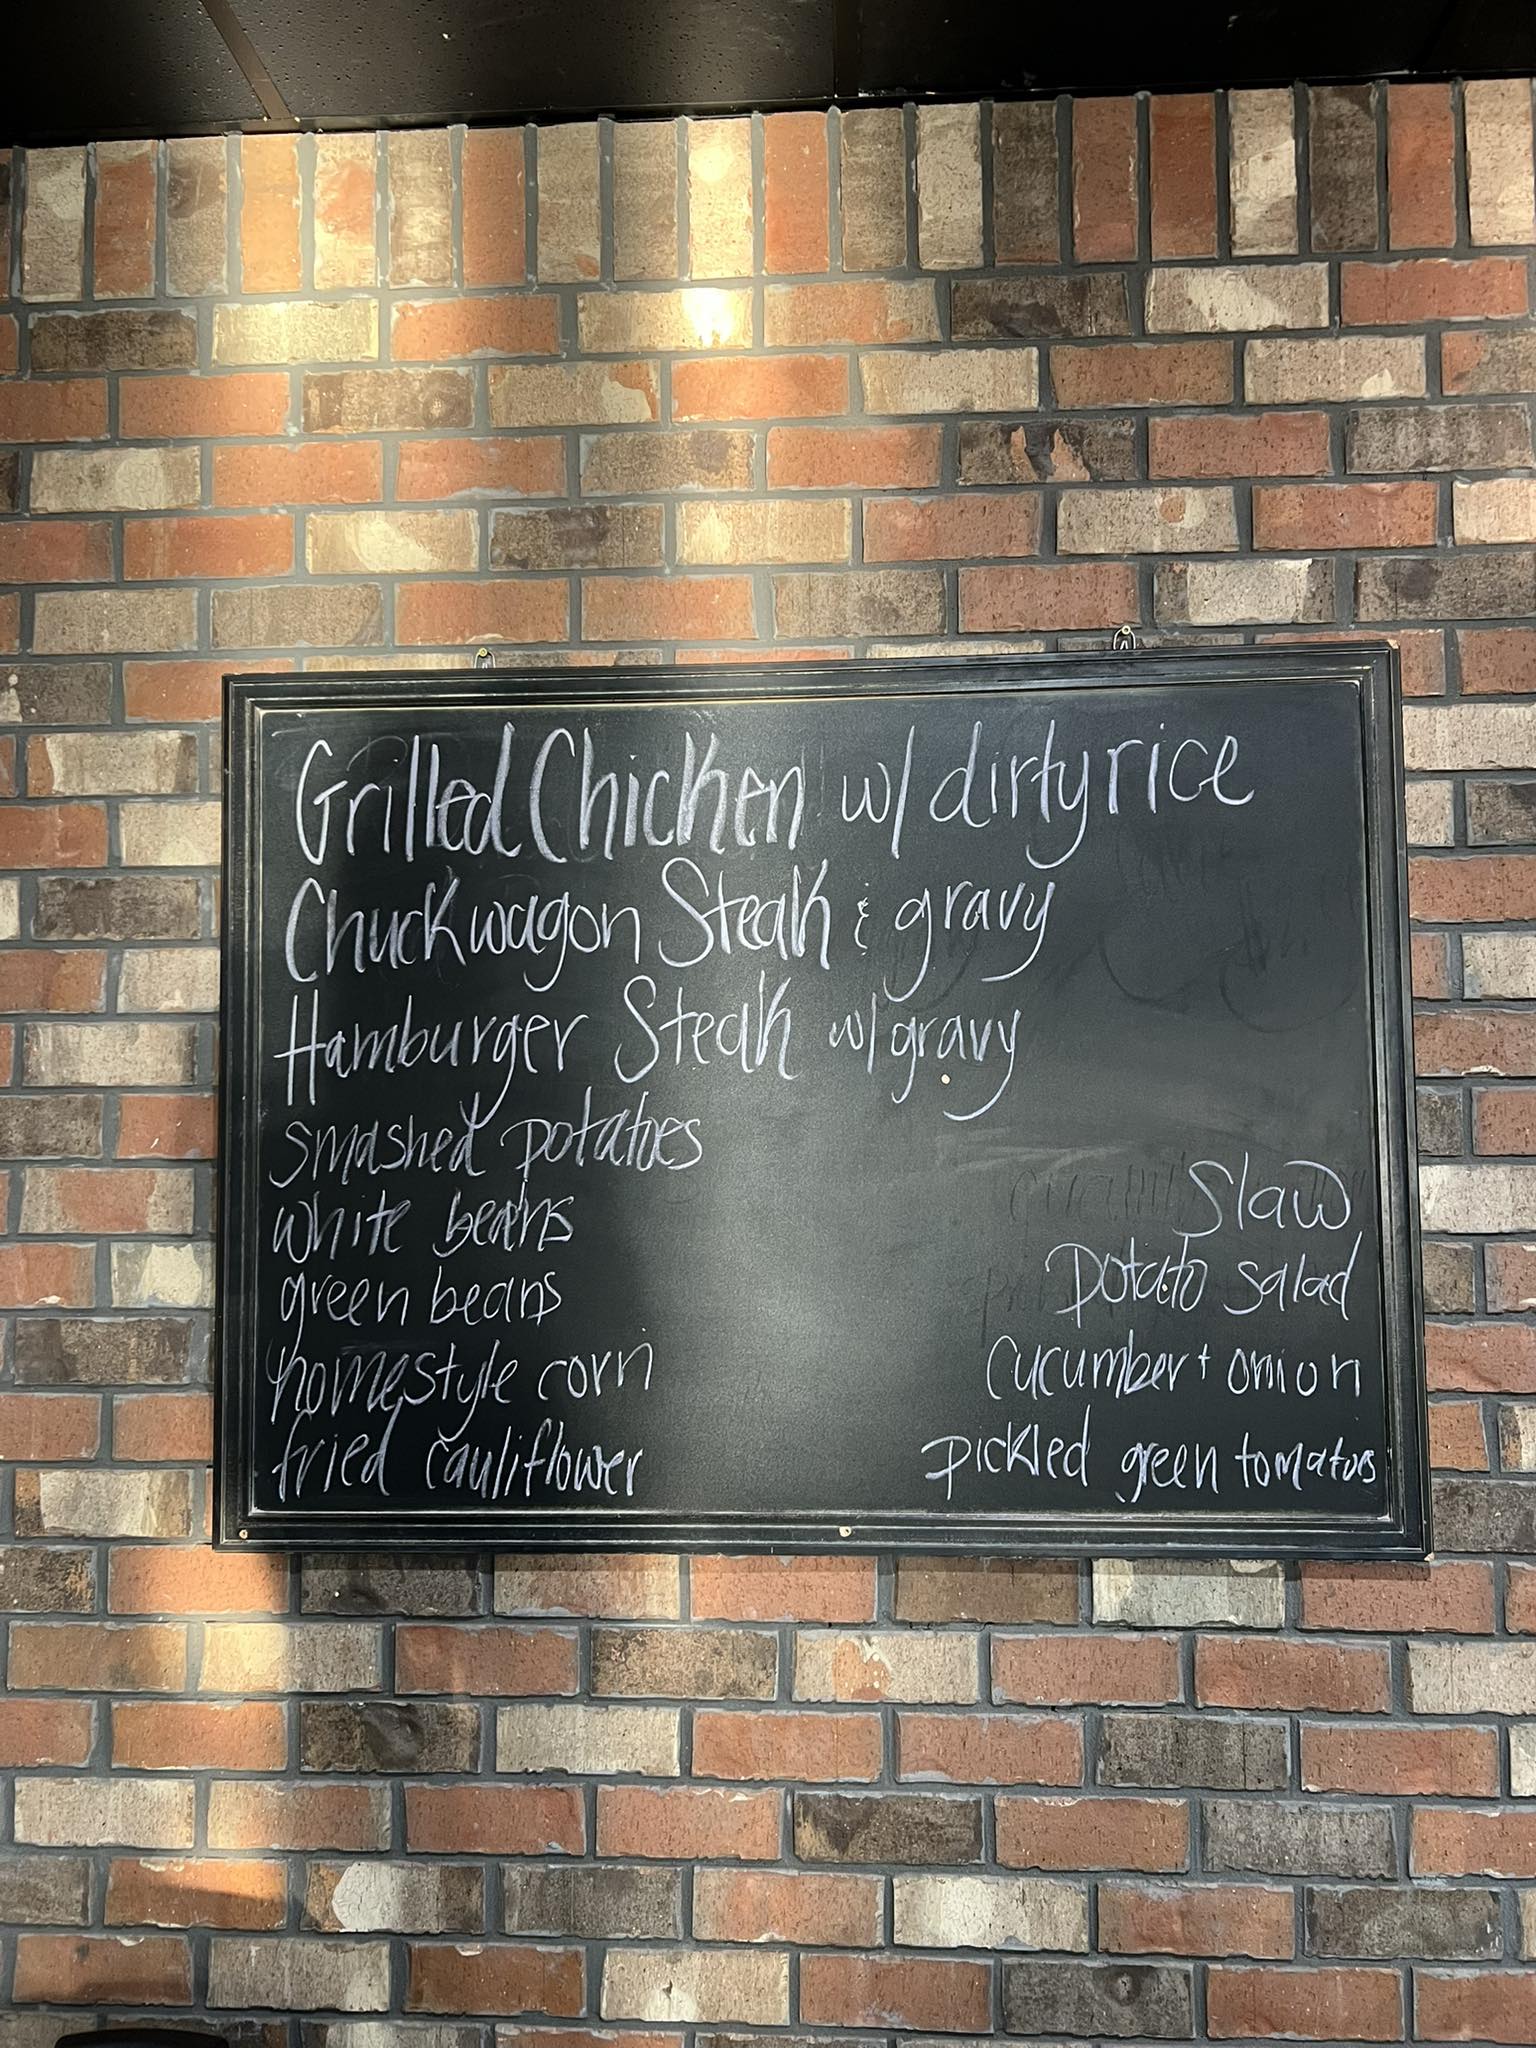 Grilled Chicken w/ dirty rice
Chuckwagon Steak & gravy
Hamburger Steak w/ gravy
smashed potatoes
white beans
green beans
homestyle corn
fried cauliflower
Slaw
potato salad
cucumber + onion
pickled green tomatoes